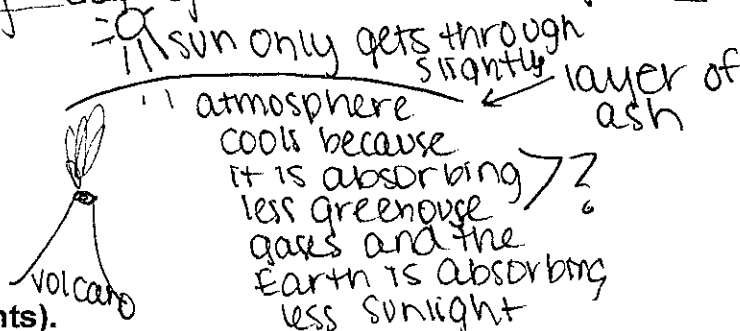 sun only gets through
slightly
layer of
ash
atmosphere
cools because
it is absorbing
less greenouge
gases and the
Earth is absorbing
less sunlight
?
volcano
nts).